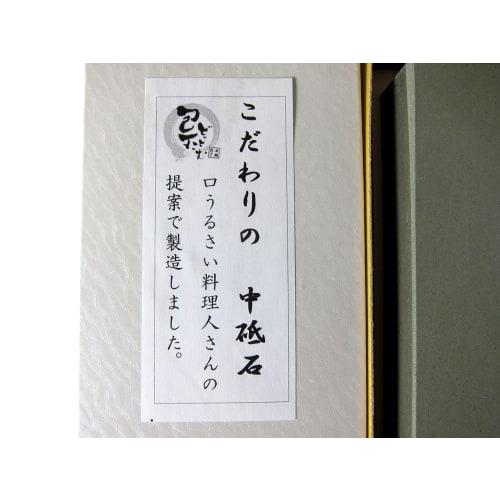 こだわりの 中砥石
口うるさい料理人さんの
提案で製造しました。